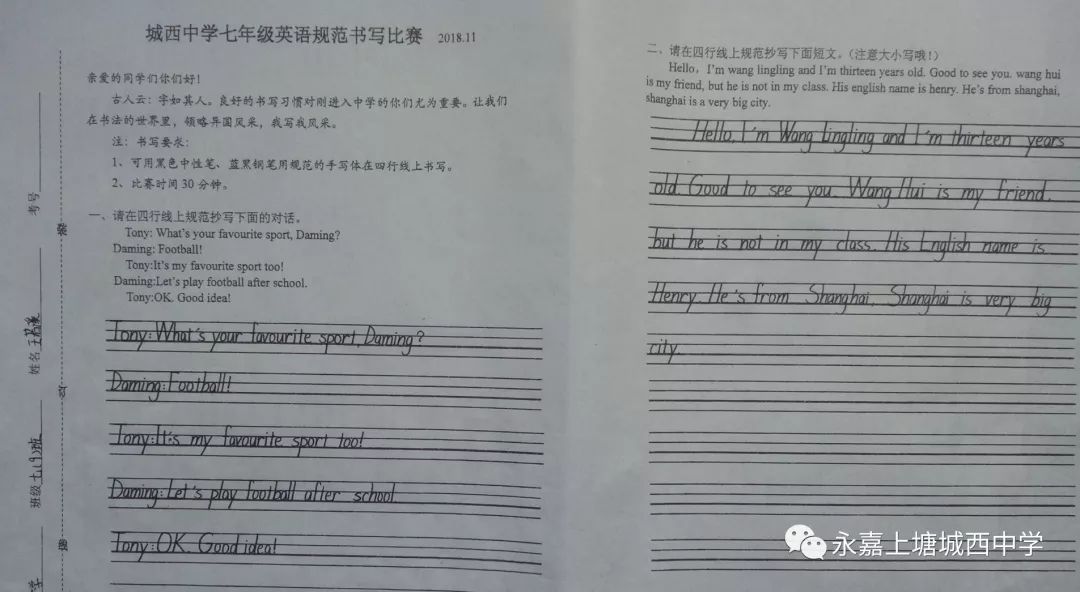 城西中学七年级英语规范书写比赛 2018.11
亲爱的同学们你们好！
古人云：字如其人。良好的书写习惯对刚进入中学的你们尤为重要。让我们
在书法的世界里，领略异国风采，我写我风采。
注：书写要求：
1、可用黑色中性笔、蓝黑钢笔用规范的手写体在四行线上书写。
2、比赛时间 30 分钟。
一、请在四行线上规范抄写下面的对话。
Tony: What's your favourite sport, Daming?
Daming: Football!
Tony:It's my favourite sport too!
Daming:Let's play football after school.
Tony:OK. Good idea!
Tony:What's your favourite sport,Daming?
Daming:Football!
Tony:It's my favourite sport too!
Daming:Let's play football after school.
Tony:OK. Good idea!
考号
姓名
班级
装
订
二、请在四行线上规范抄写下面短文。（注意大小写哦！）
Hello, I'm wang lingling and I'm thirteen years old. Good to see you. wang hui
is my friend, but he is not in my class. His english name is henry. He's from shanghai,
shanghai is a very big city.
Hello, I'm Wang Lingling and I'm thirteen years
old. Good to see you. Wang Hui is my friend,
but he is not in my class. His English name is
Henry. He's from Shanghai, Shanghai is very big
city.
永嘉上塘城西中学